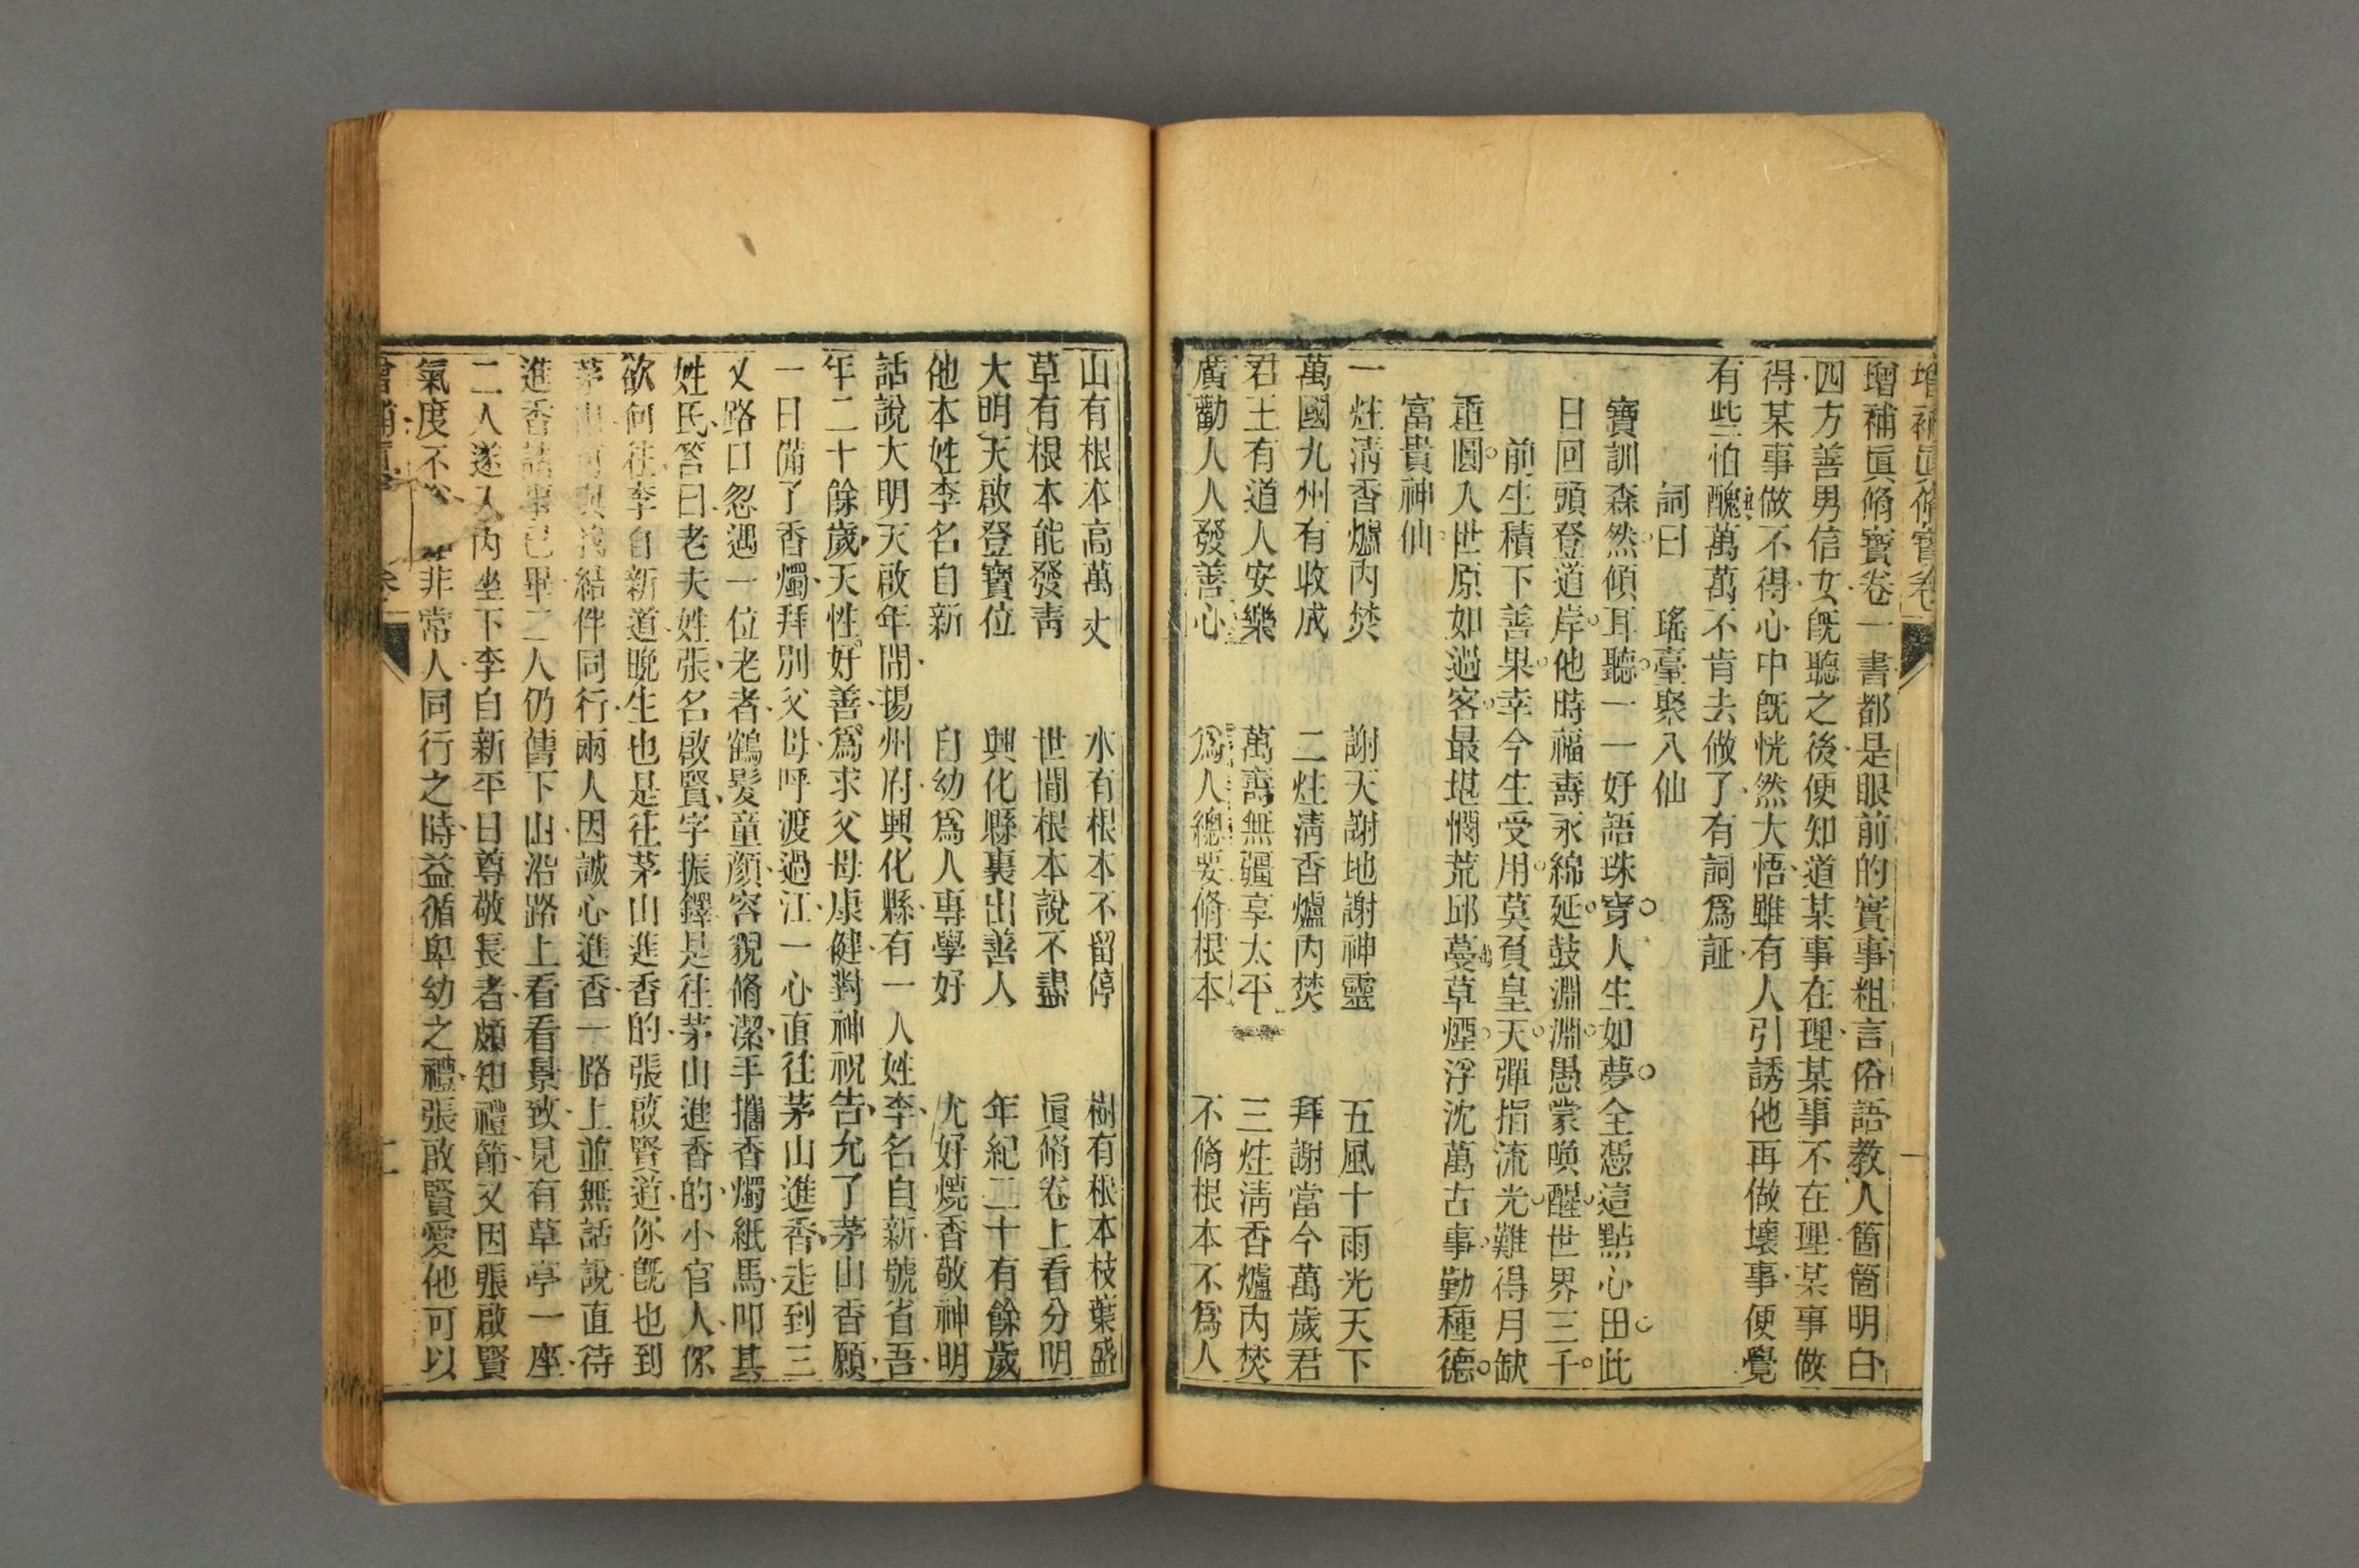 增補眞脩寶卷 一
增補眞脩寶卷一書都是眼前的實事粗言俗語教人箇箇明白
四方善男信女旣聽之後便知道某事在理某事不在理某事做
得某事做不得心中旣恍然大悟雖有人引誘他再做壞事便覺
有些怕醜萬萬不肯去做了有詞爲証
詞曰 瑤臺聚八仙
寶訓森然傾耳聽一一好語珠穿人生如夢全憑這點心田此
日回頭登道岸他時福壽永綿延鼓淵淵愚蒙喚醒世界三千
前生積下善果幸今生受用莫負皇天彈指流光難得月缺
重圓人世原如過客最堪憫荒邱蔓草煙浮沈萬古事勤種德
富貴神仙
一炷清香爐內焚 謝天謝地謝神靈 五風十雨光天下
萬國九州有收成 二炷清香爐內焚 拜謝當今萬歲君
君王有道人安樂 萬壽無疆享太平 三炷清香爐內焚
廣勸人人發善心 爲人總要脩根本 不脩根本不爲人
山有根本高萬丈 水有根本不留停 樹有根本枝葉盛
草有根本能發靑 世間根本說不盡 眞脩卷上看分明
大明天啟登寶位 興化縣裏出善人 年紀二十有餘歲
他本姓李名自新 自幼爲人專學好 尤好燒香敬神明
話說大明天啟年間揚州府興化縣有一人姓李名自新號省吾
年二十餘歲天性好善爲求父母康健對神祝告允了茅山香願
一日備了香燭拜別父母呼渡過江一心直往茅山進香走到三
叉路口忽遇一位老者鶴髮童顏容貌脩潔手攜香燭紙馬叩其
姓氏答曰老夫姓張名啟賢字振鐸是往茅山進香的小官人你
欲何往李自新道晚生也是往茅山進香的張啟賢道你旣也到
茅山何與我結伴同行兩人因誠心進香一路上並無話說直待
進香諸事已畢二人仍舊下山沿路上看看景致見有草亭一座
二人遂入內坐下李自新平日尊敬長者頗知禮節又因張啟賢
氣度不 非常人同行之時益循卑幼之禮張啟賢愛他可以
增補 二